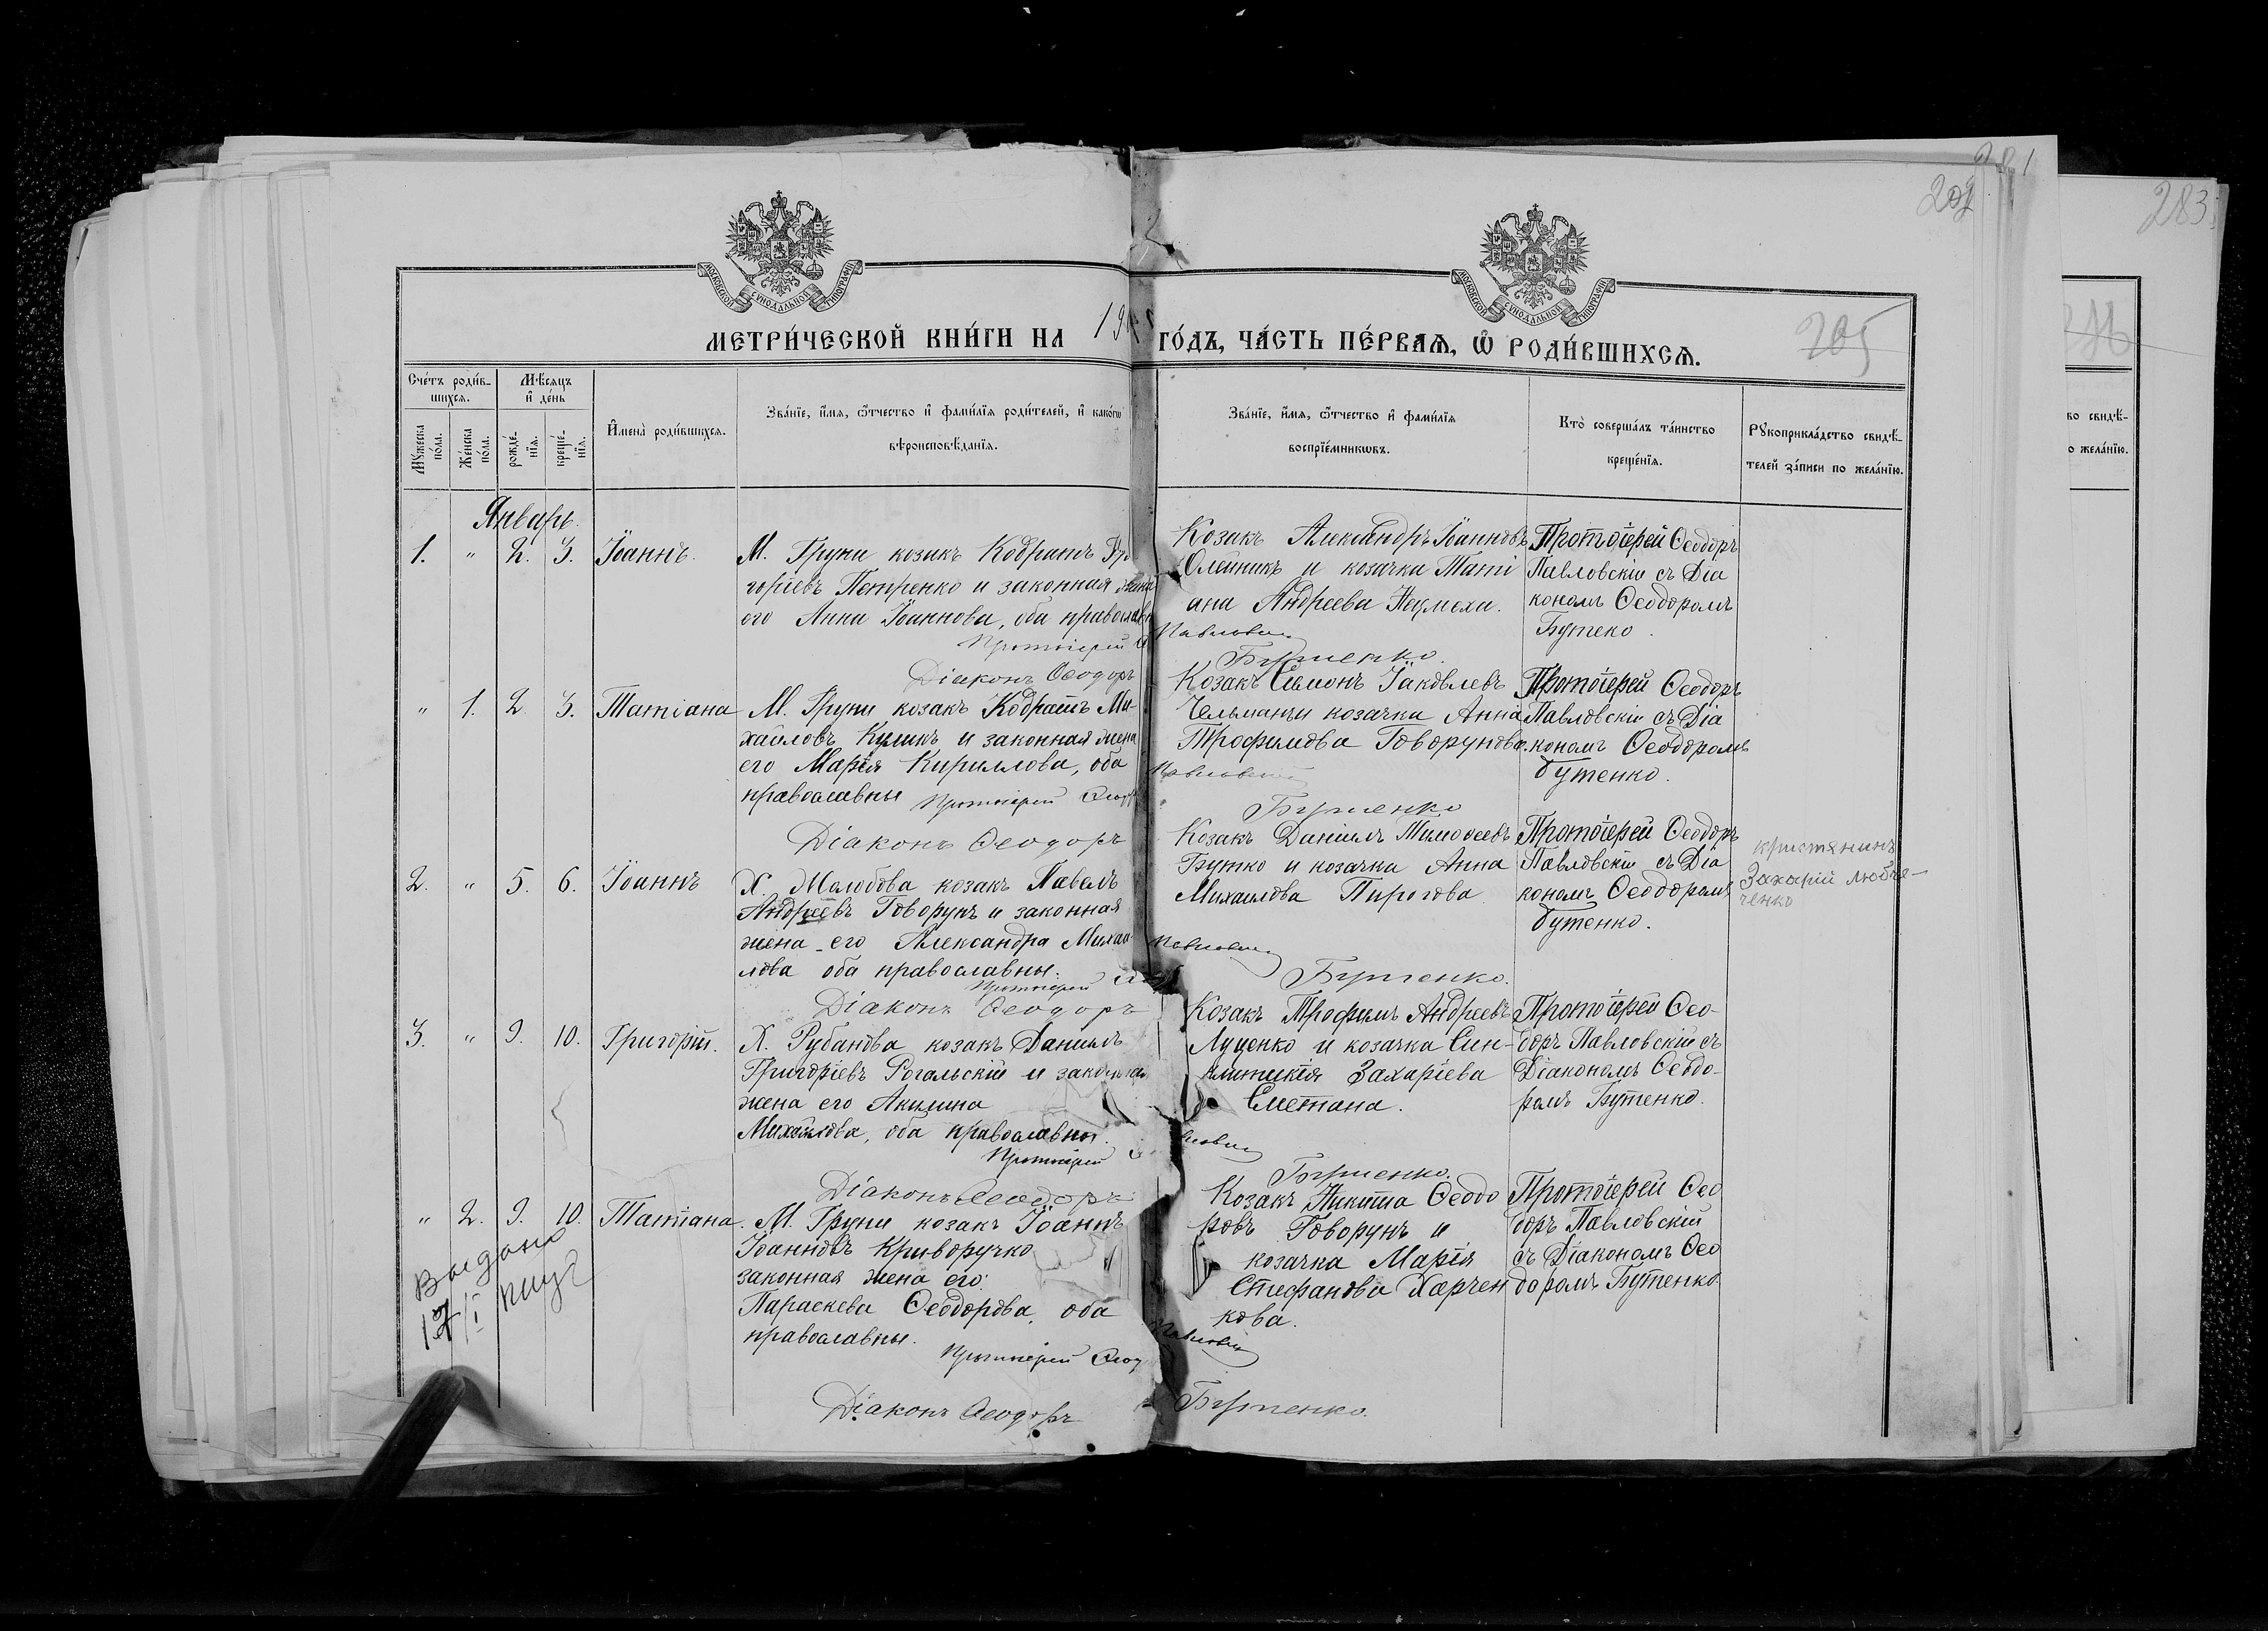 281
283
МОСКОВСКОЙ СѴНОДАЛЬНОЙ ТИПОГРАФІИ
МОСКОВСКОЙ СѴНОДАЛЬНОЙ ТИПОГРАФІИ
МЕТРИ́ЧЕСКОЙ КНИ́ГИ НА 19
ГО́ДЪ, ЧА́СТЬ ПЕ́РВАѦ, Ѿ РОДИ́ВШИХСѦ.
205
Сче́тъ роди́вшихсѧ.
Мꙋ́жеска по́ла.
Же́нска по́ла.
Мѣ́сѧцъ и҆ де́нь
рожде́нїѧ.
креще́нїѧ.
И҆мена̀ роди́вшихсѧ.
Зва́нїе, и҆́мѧ, ѻ҆́тчество и҆ фами́лїѧ роди́телей, и҆ како́гѡ
вѣроисповѣ́данїѧ.
Зва́нїе, и҆́мѧ, ѻ҆́тчество и҆ фами́лїѧ
воспрїе́мникѡвъ.
Кто̀ соверша́лъ та́инство
креще́нїѧ.
Рꙋкоприкла́дство свидѣ́-
телей за́писи по жела́нїю.
Январь.
1. " 2. 3. Іоаннъ.
М. Груни козакъ Кодратъ Гри
горіевъ Петренко и законная жена
его Анна Іоаннова, оба православн
Протоіерей
Діаконъ Ѳеодоръ
Козакъ Александръ Іоанновъ
Олейникъ и козачка Тати
ана Андреева Неумеха.
Павловскій
Бутенко.
Протоіерей Ѳеодоръ
Павловскій съ Діа
кономъ Ѳеодоромъ
Бутеко.
" 1. 2. 3. Татіана
М. Груни козакъ Кодратъ Ми-
хайловъ Куликъ и законная жена
его Марія Кириллова, оба
православны Протоіерей Ѳеод
Діаконъ Ѳеодоръ
Козакъ Симонъ Іаковлевъ
козачка Анна
Трофимова Говорунова.
Павловскій
Бутенко
Протоіерей Ѳеодоръ
Павловскій съ Діа
кономъ Ѳеодоромъ
Бутенко.
2. " 5. 6. Іоаннъ
Х. Малобова козакъ Павелъ
Андреевъ Говорунъ и законная
жена его Александра Михаи
лова оба православны.
Протоіерей
Діаконъ Ѳеодоръ
Козакъ Даніилъ Тимоѳеевъ
Бутко и козачка Анна
Михаилова Пирогова
Павловскій
Бутенко.
Протоіерей Ѳеодоръ
Павловскій съ Діа
кономъ Ѳеодоромъ
Бутенко.
Захарій Любче-
ченко
3. " 9. 10. Григорій.
Х. Рубанова козакъ Даніилъ
Григоріевъ Рогальскій и законная
жена его Акилина
Михайлова, оба православны.
Протоіерей
Діаконъ Ѳеодоръ
Козакъ Трофимъ Андреевъ
Луценко и козачка Син-
клитикія Захаріева
Сметана.
Бутенко.
Протоіерей Ѳео-
доръ Павловскій съ
Діакономъ Ѳеодо-
ромъ Бутенко.
" 2. 9. 10. Татіана.
М. Груни козакъ Іоаннъ
Іоанновъ Криворучко
законная жена его
Параскева Ѳеодорова, оба
православны.
Протоіерей Ѳеод
Діаконъ Ѳеодоръ
Козакъ Никита Ѳеодо
ровъ Говорунъ и
козачка Марія
Стефанова Харчен
кова.
Павловскій
Бутенко.
Протоіерей Ѳео
доръ Павловскій
съ Діакономъ Ѳео
доромъ Бутенко
Выдано